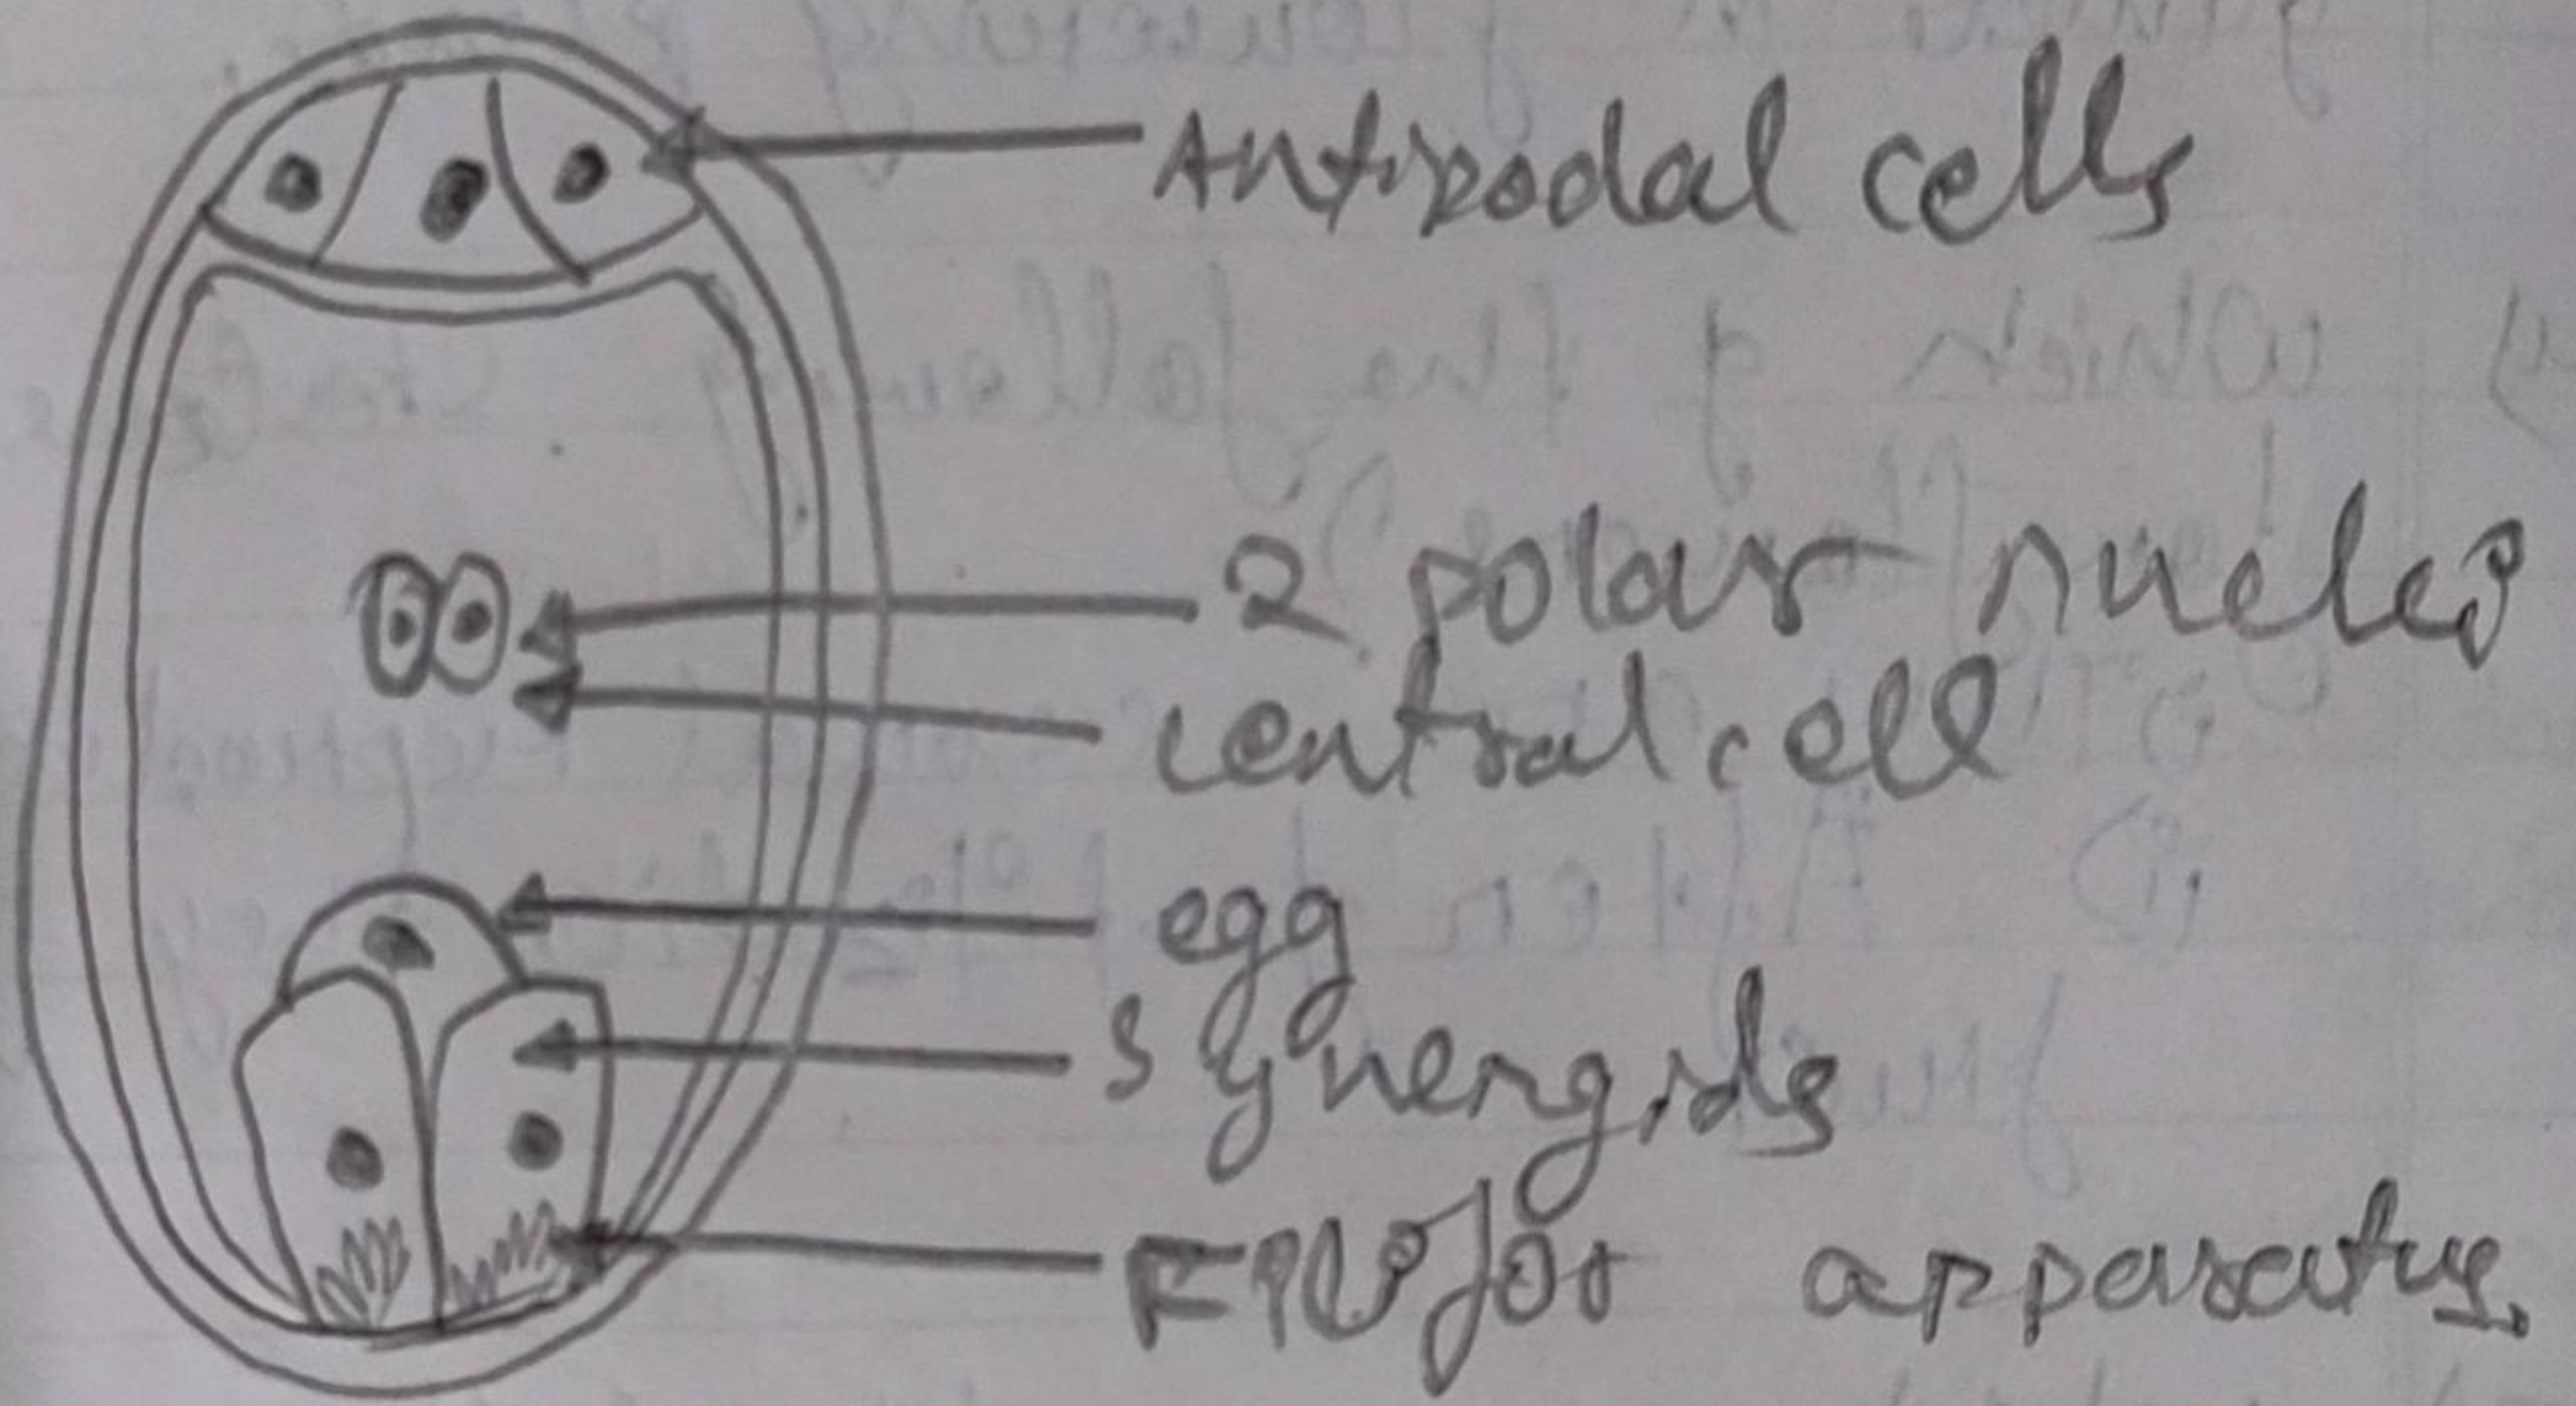 Antipodal cells
2 polar nuclei
central cell
egg
synergids
Filifor apparatus.